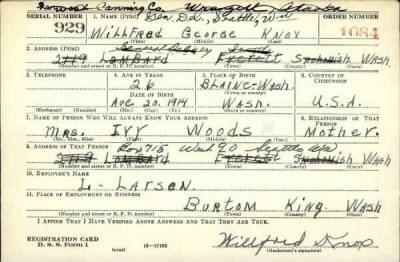 Farwest Canning Co. Wrangell, Alaska
Gen. Del., Seattle, Wn
SERIAL NUMBER
1. NAME (Print)
ORDER NUMBER
929
WILLFRED GEORGE KNOX
1084
(First) (Middle) (Last)
2. ADDRESS (Print)
General Delivery Seattle
2119 LOMBARD Everett Snohomish WASH.
(Number and street or R. F. D. number) (Town) (County) (State)
3. TELEPHONE
4. AGE IN YEARS
5. PLACE OF BIRTH
6. COUNTRY OF CITIZENSHIP
26
BLAINE-WASH.
DATE OF BIRTH
(Town or county)
AUG 20, 1914
WASH.
U.S.A.
(Exchange) (Number)
(Mo.) (Day) (Yr.)
(State or country)
7. NAME OF PERSON WHO WILL ALWAYS KNOW YOUR ADDRESS
8. RELATIONSHIP OF THAT PERSON
MRS. IVY WOODS
MOTHER.
(Mr., Mrs., Miss) (First) (Middle) (Last)
9. ADDRESS OF THAT PERSON
Box 715 Seattle Wn
2119 LOMBARD Everett Snohomish WASH.
(Number and street or R. F. D. number) (Town) (County) (State)
10. EMPLOYER'S NAME
L- LARSEN.
11. PLACE OF EMPLOYMENT OR BUSINESS
BURTOM King. WASH
(Number and street or R. F. D. number) (Town) (County) (State)
I AFFIRM THAT I HAVE VERIFIED ABOVE ANSWERS AND THAT THEY ARE TRUE.
REGISTRATION CARD
D. S. S. Form 1
(over)
16-17105
Willfred Knox
(Registrant's signature)